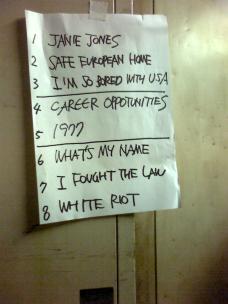 1 JANIE JONES
2 SAFE EUROPEAN HOME
3 I'M SO BORED WITH USA
4 CAREER OPPOTUNITIES
5 1977
6 WHAT'S MY NAME
7 I FOUGHT THE LAW
8 WHITE RIOT